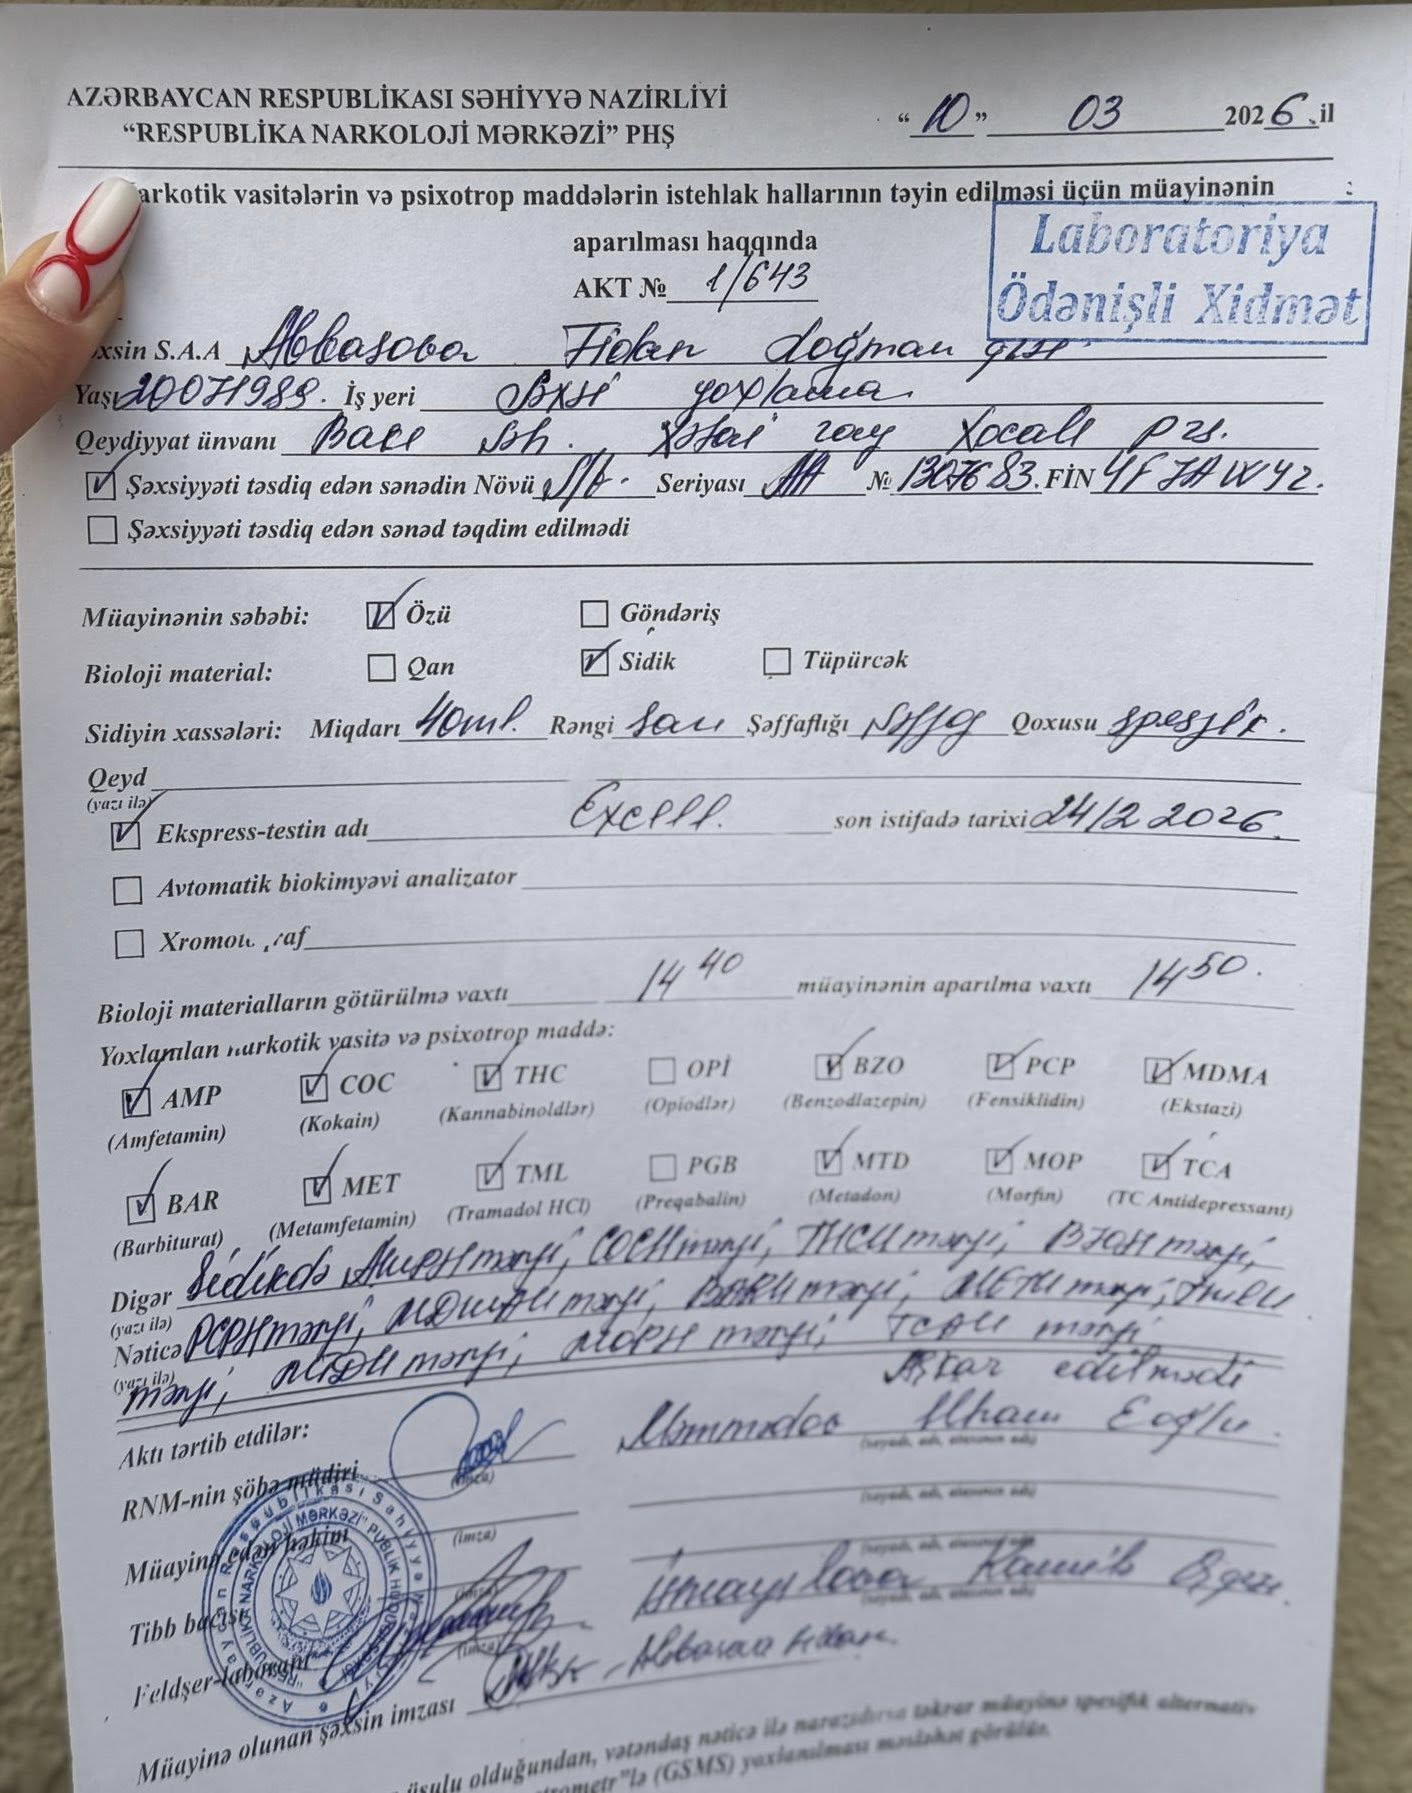 AZƏRBAYCAN RESPUBLİKASI SƏHİYYƏ NAZİRLİYİ
“RESPUBLİKA NARKOLOJİ MƏRKƏZİ” PHŞ
“10” 03 2026.il
arkotik vasitələrin və psixotrop maddələrin istehlak hallarının təyin edilməsi üçün müayinənin
aparılması haqqında
Laboratoriya
Ödənişli Xidmət
AKT № 1/643
xsin S.A.A Abbasova Fidan Doğman qızı
Yaşı 20071989. İş yeri Şəxsi yoxlama
Qeydiyyat ünvanı Bakı şəh. Xətai ray Xocalı prs.
Şəxsiyyəti təsdiq edən sənədin Növü Ş/V. Seriyası AA № 1307683. FİN
Şəxsiyyəti təsdiq edən sənəd təqdim edilmədi
Müayinənin səbəbi: Özü Göndəriş
Bioloji material: Qan Sidik Tüpürcək
Sidiyin xassələri: Miqdarı 40ml. Rəngi sarı Şəffaflığı şəffaf Qoxusu spesifik.
Qeyd
(yazı ilə)
Ekspress-testin adı Excell. son istifadə tarixi 24/12 2026.
Avtomatik biokimyəvi analizator
Bioloji materialların götürülmə vaxtı 14 40 müayinənin aparılma vaxtı 14 50.
Yoxlanılan narkotik vasitə və psixotrop maddə:
AMP COC THC OPİ BZO PCP MDMA
(Amfetamin) (Kokain) (Kannabinoldlər) (Opiodlər) (Benzodlazepin) (Fensiklidin) (Ekstazi)
BAR MET TML PGB MTD MOP TCA
(Barbiturat) (Metamfetamin) (Tramadol HCl) (Preqabalin) (Metadon) (Morfin) (TC Antidepressant)
Digər Sidikdə AMPH mənfi, COCH mənfi, THCH mənfi, BZOH mənfi,
(yazı ilə)
Nəticə PCPH mənfi, MDMAH mənfi, BARH mənfi, METH mənfi, TMLH
(yazı ilə)
mənfi, MTDH mənfi, MOPH mənfi, TCAH mənfi
Aşkar edilmədi
Aktı tərtib etdilər:
RNM-nin şöbə müdiri (imza) Məmmədov İlham E oğlu
Müayinə edən həkim (imza)
Tibb bacısı
Feldşer-laborant (imza) İsmayılova Kəmalə
Müayinə olunan şəxsin imzası Abbasova Fidan
üsulu olduğundan, vətəndaş nəticə ilə narazıdırsa təkrar müayinə spesifik alternativ
trometr”lə (GSMS) yoxlanılması məsləhət görülür.